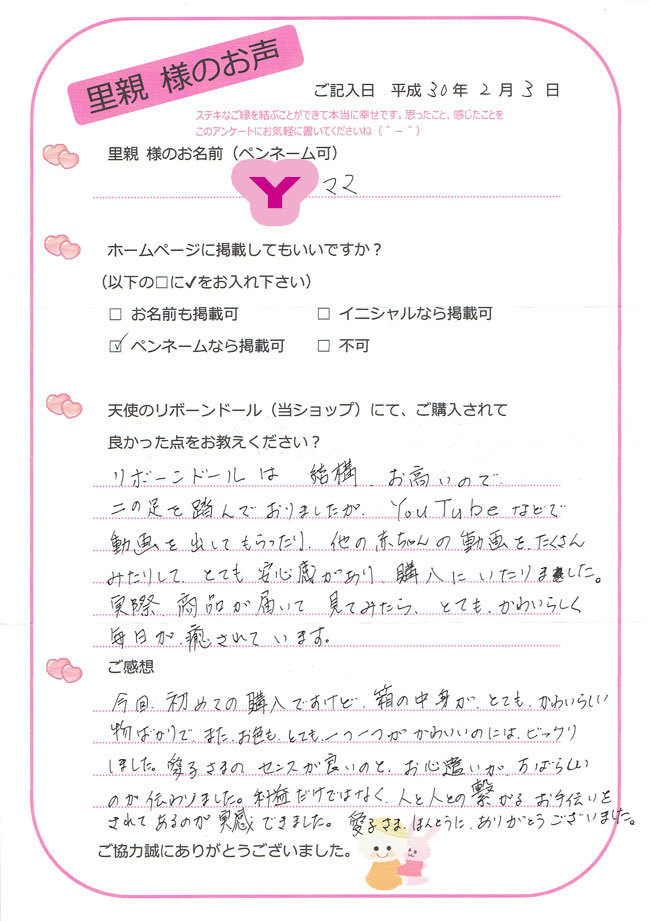 里親 様のお声
ご記入日 平成30年2月3日
ステキなご縁を結ぶことができて本当に幸せです。思ったこと、感じたことを
このアンケートにお気軽に書いてくださいね（＾－＾）
里親 様のお名前（ペンネーム可）
Y ママ
ホームページに掲載してもいいですか？
（以下の□に✓をお入れ下さい）
□ お名前も掲載可 □ イニシャルなら掲載可
☑ ペンネームなら掲載可 □ 不可
天使のリボーンドール（当ショップ）にて、ご購入されて
良かった点をお教えください？
リボーンドールは 結構、お高いので、
二の足を踏んでおりましたが、YouTubeなどで
動画を出してもらったり、他の赤ちゃんの動画を、たくさん
みたりして、とても、安心感があり、購入にいたりました。
実際、商品が届いて 見てみたら、とても、かわいらしく
毎日が、癒されています。
ご感想
今回、初めての購入ですけど、箱の中身が、とても、かわいらしい
物ばかりで、また、お色も、とても、一つ一つが かわいいのには、ビックリ
しました。愛子さまの センスが良いのと、お心遣いが、すばらしい
のが伝わりました。利益だけではなく、人と人との繋がる お手伝いを
されてあるのが 実感できました。愛子さま、ほんとうに、ありがとうございました。
ご協力誠にありがとうございました。